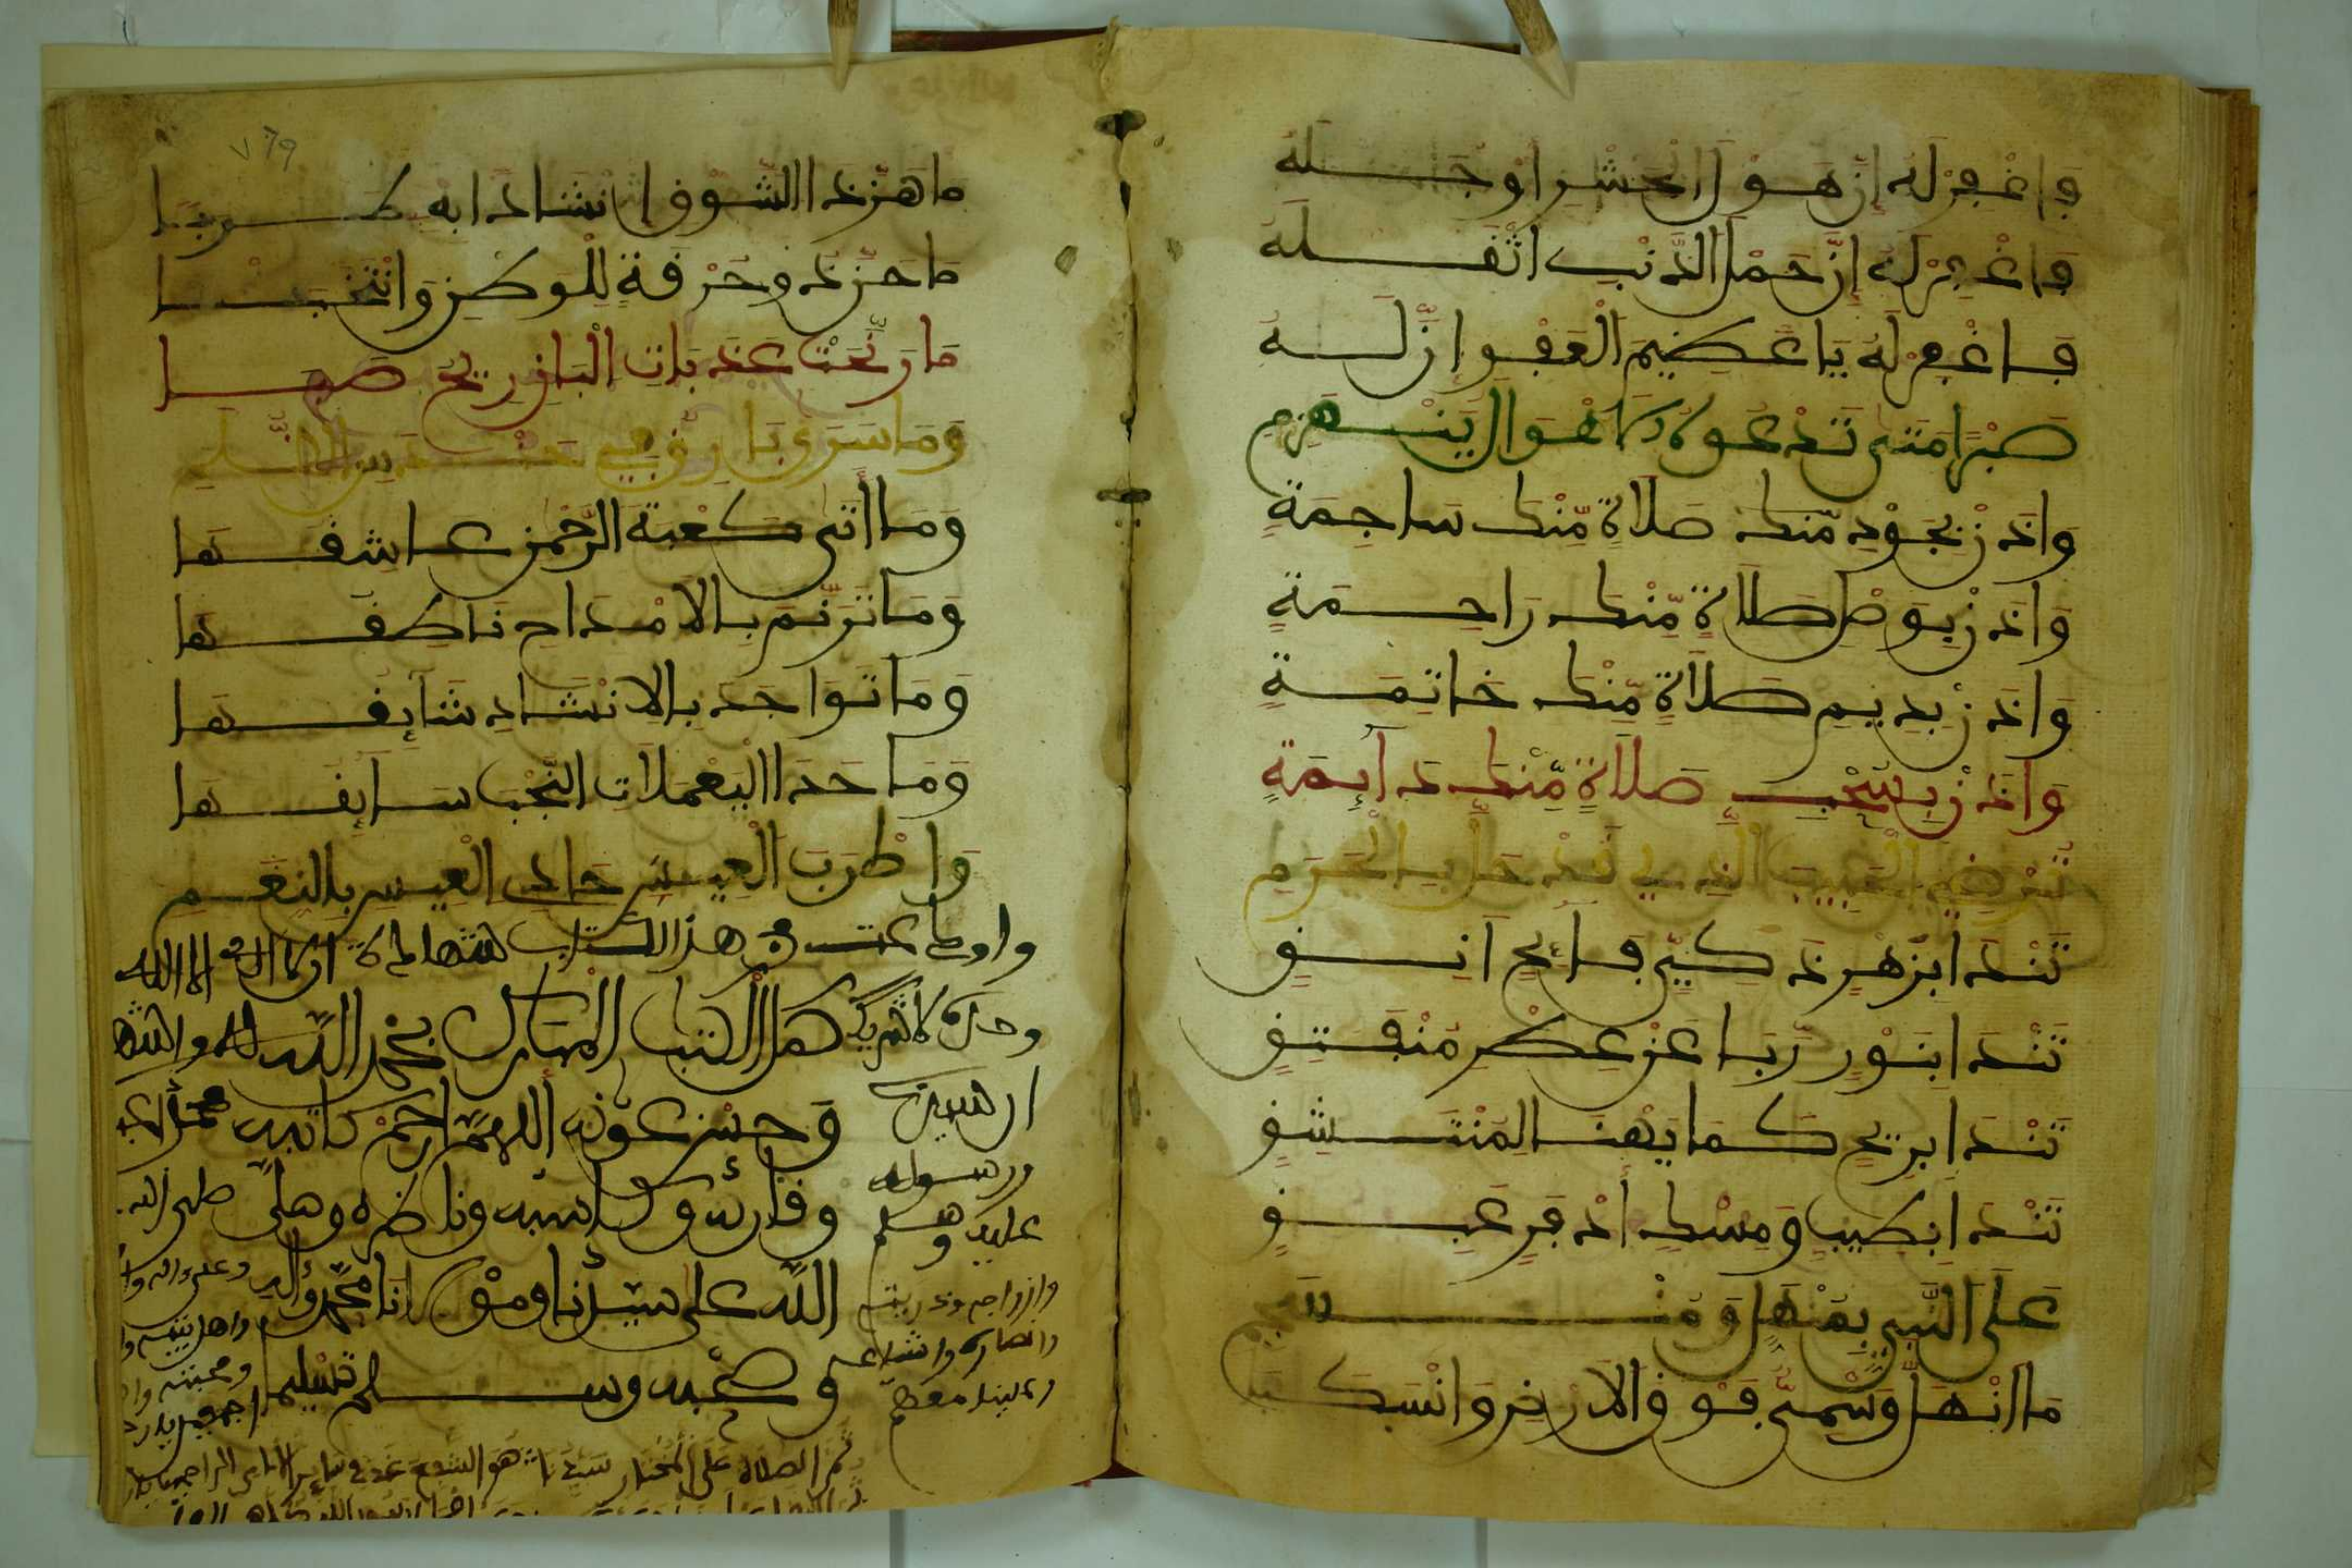 واغفر له إن هول الحشر اوجله
واغفر له إن حمل الذنب اثقله
فاغفر له يا عظيم العفو ان له
صبرا متى تدعوه الاهوال ينهزم
وائذن بجود منك صلاة منك ساجمة
وائذن بوصل صلاة منك راحمة
وائذن بديم صلاة منك خاتمة
وائذن بسحب صلاة منك دآيمة
ترضي الحبيب الذي قد حل بالحرم
تندا بزهر ذكي فآيح انف
تندا بنور ربا عن عكر منتف
تندا بريح كما يهنا المنتشف
تندا بطيب ومسك أذفر عبق
على النبي بمنهل ومنسجم
ما انهل وسمي فوق الارض وانسكبا
ما هز ذا الشوق إنشاد ابه طربا
ما حن ذو حرقة للوطن وانتحبا
ما رنحت عذبات البان ريح صبا
وما سرى بارق في حندس الظلم
وما أتى كعبة الرحمن عاشقها
وما ترنم بالامداح ناطقها
وما تواجد بالانشاد شآيقها
وما حدا اليعملات النجب سآيقها
واطرب العيس حادي العيس بالنغم
واودعت في هذا الكتاب شهادة ان لا اله الا الله
وحده لا شريك له واشهد
كمل الكتب المبارك بحمد الله
ان سيدنا
وحسن عونه اللهم ارحم كاتبه
محمدا عبده
ورسوله
وقارئه وكاسبه وناظره وصلى
صلى الله
عليه وسلم
الله على سيدنا ومولانا محمد وآله
وعلى ءاله
وازواجه وذريته
واهل بيته
وصحبه وسلم تسليما
وانصاره واشياعه
ومحبيه
وعلينا معهم
اجمعين
ثم الصلاة على المختار سيدنا